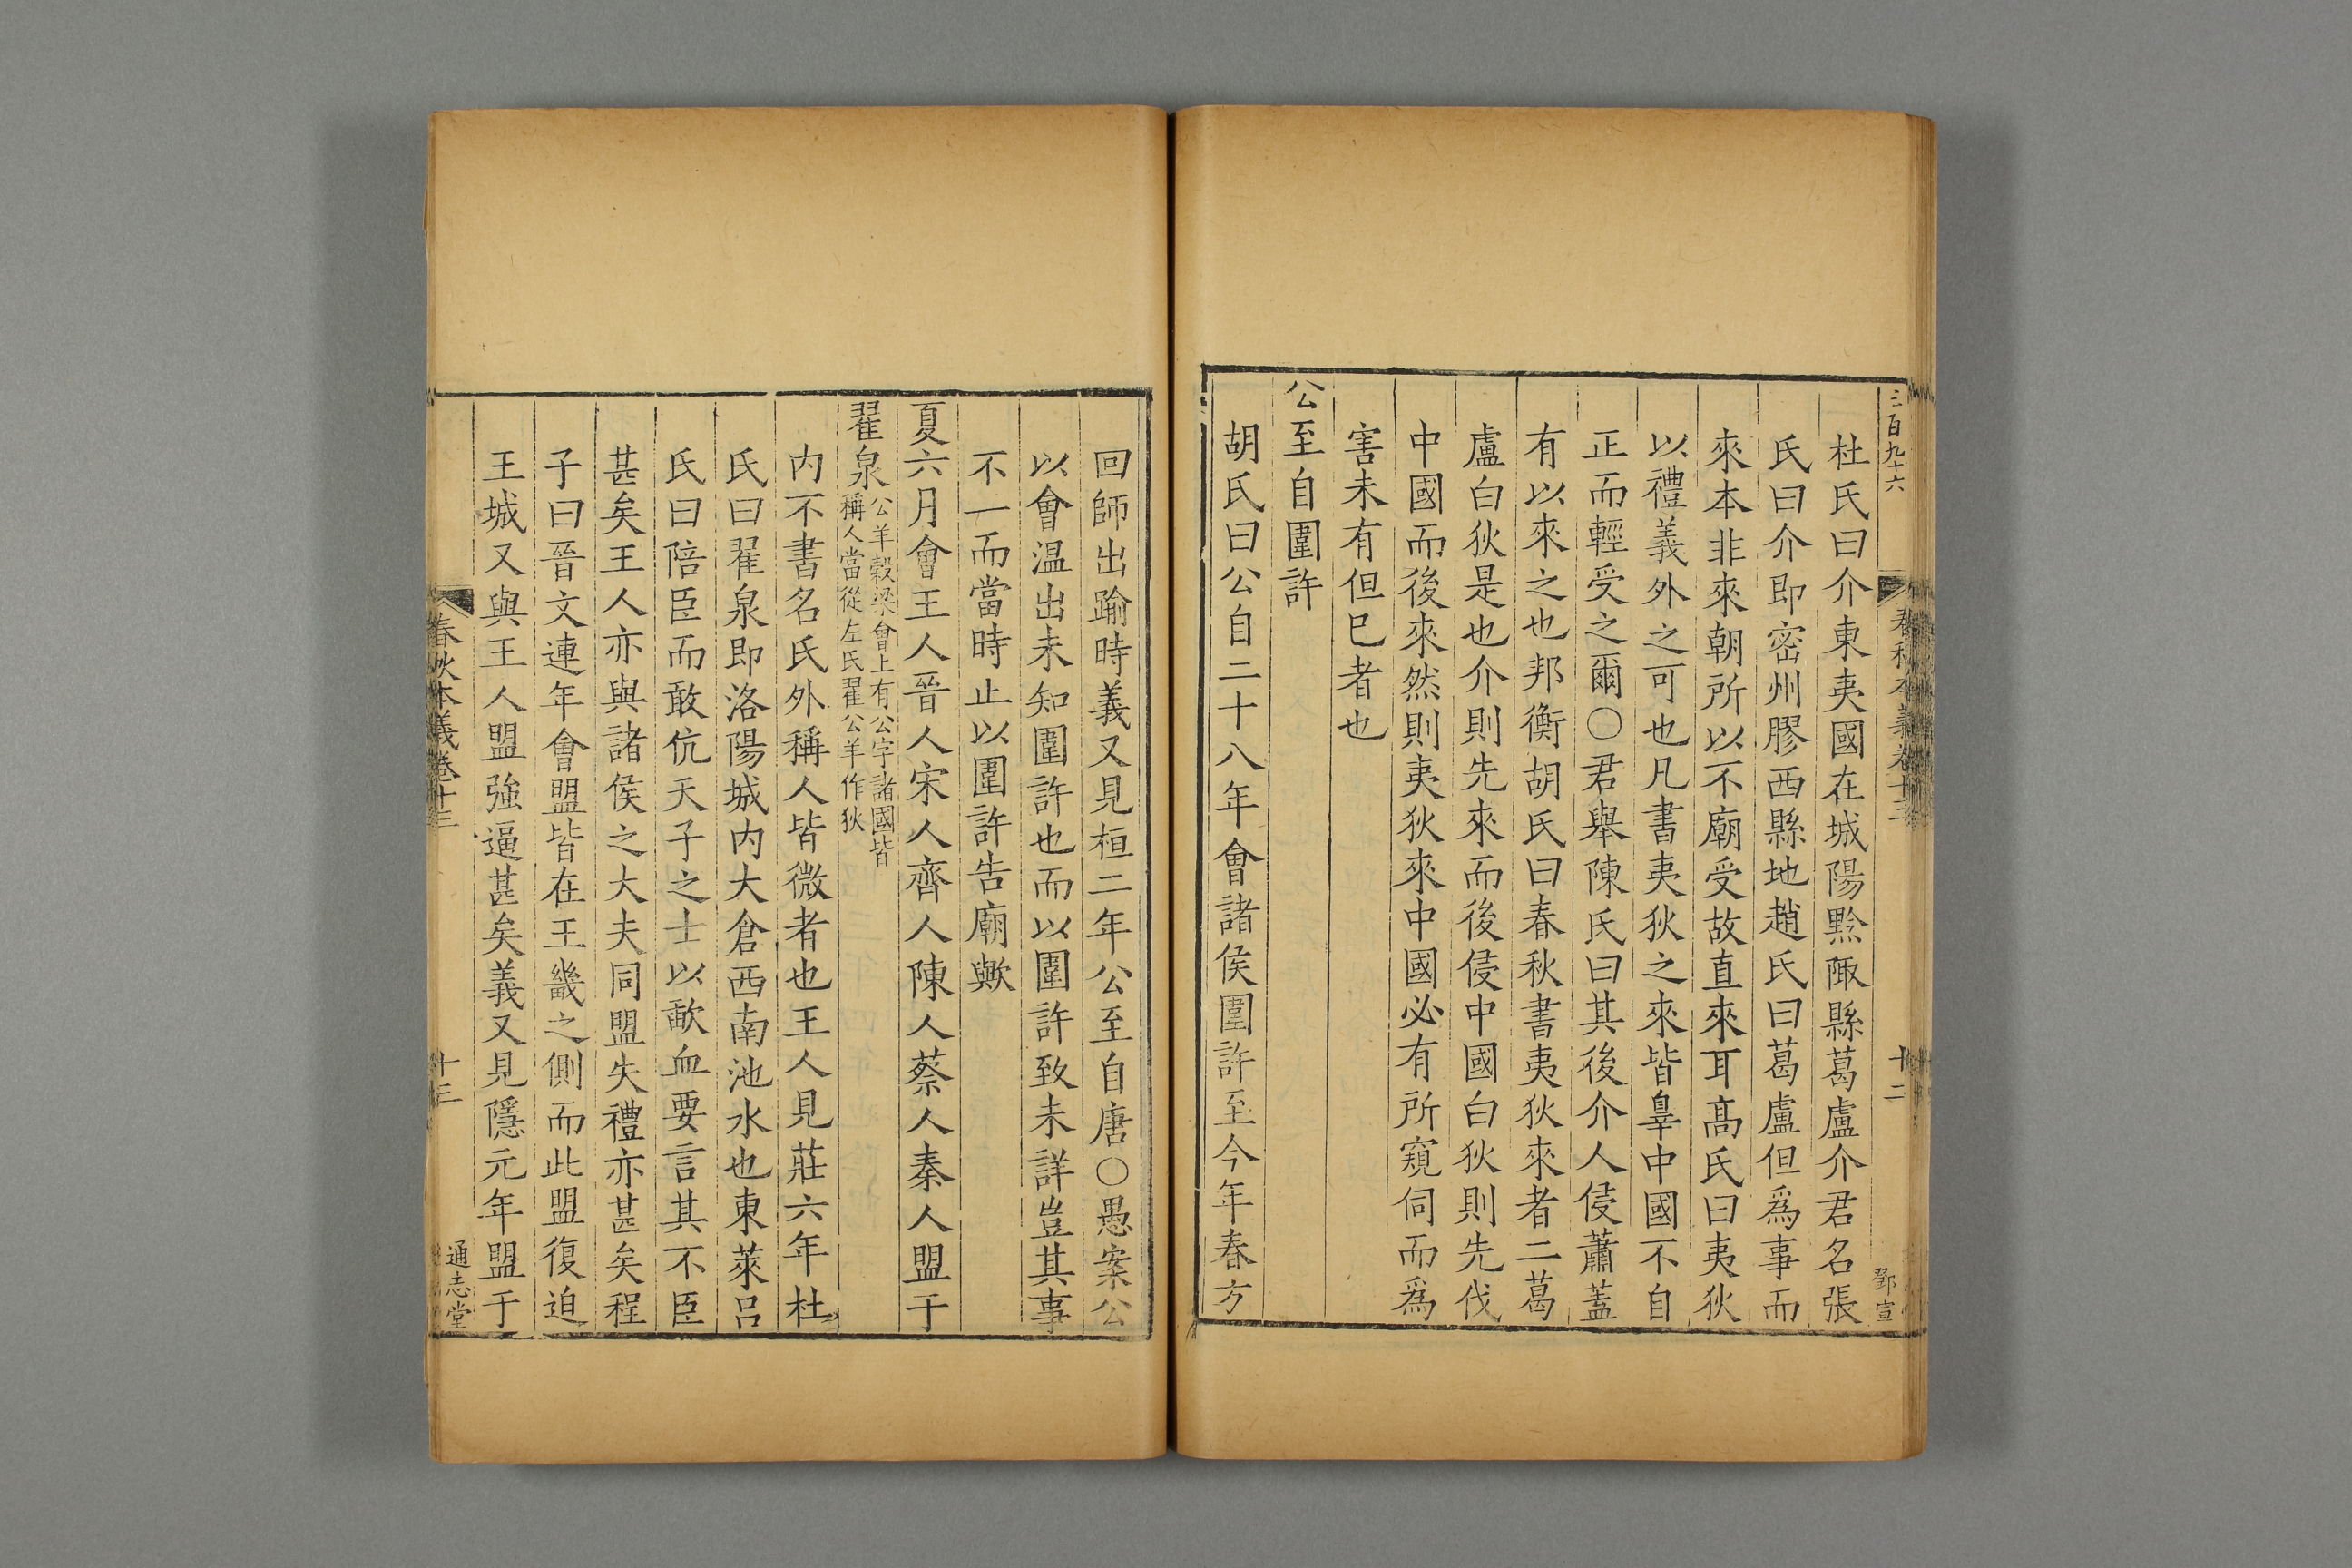 三百九十六
春秋本義卷十三
十二
鄧宣
杜氏曰介東夷國在城陽黔陬縣葛盧介君名張
氏曰介即密州膠西縣地趙氏曰葛盧但爲事而
來本非來朝所以不廟受故直來耳髙氏曰夷狄
以禮義外之可也凡書夷狄之來皆辠中國不自
正而輕受之爾○君舉陳氏曰其後介人侵蕭蓋
有以來之也邦衡胡氏曰春秋書夷狄來者二葛
盧白狄是也介則先來而後侵中國白狄則先伐
中國而後來然則夷狄來中國必有所窺伺而爲
害未有但已者也
公至自圍許
胡氏曰公自二十八年會諸侯圍許至今年春方
回師出踰時義又見桓二年公至自唐○愚案公
以會温出未知圍許也而以圍許致未詳豈其事
不一而當時止以圍許告廟歟
夏六月會王人晉人宋人齊人陳人蔡人秦人盟于
翟泉公羊穀梁會上有公字諸國皆
稱人當從左氏翟公羊作狄
内不書名氏外稱人皆微者也王人見莊六年杜
氏曰翟泉即洛陽城内大倉西南池水也東萊呂
氏曰陪臣而敢伉天子之士以歃血要言其不臣
甚矣王人亦與諸侯之大夫同盟失禮亦甚矣程
子曰晉文連年會盟皆在王畿之側而此盟復迫
王城又與王人盟強逼甚矣義又見隱元年盟于
春秋本義卷十三
十三
通志堂